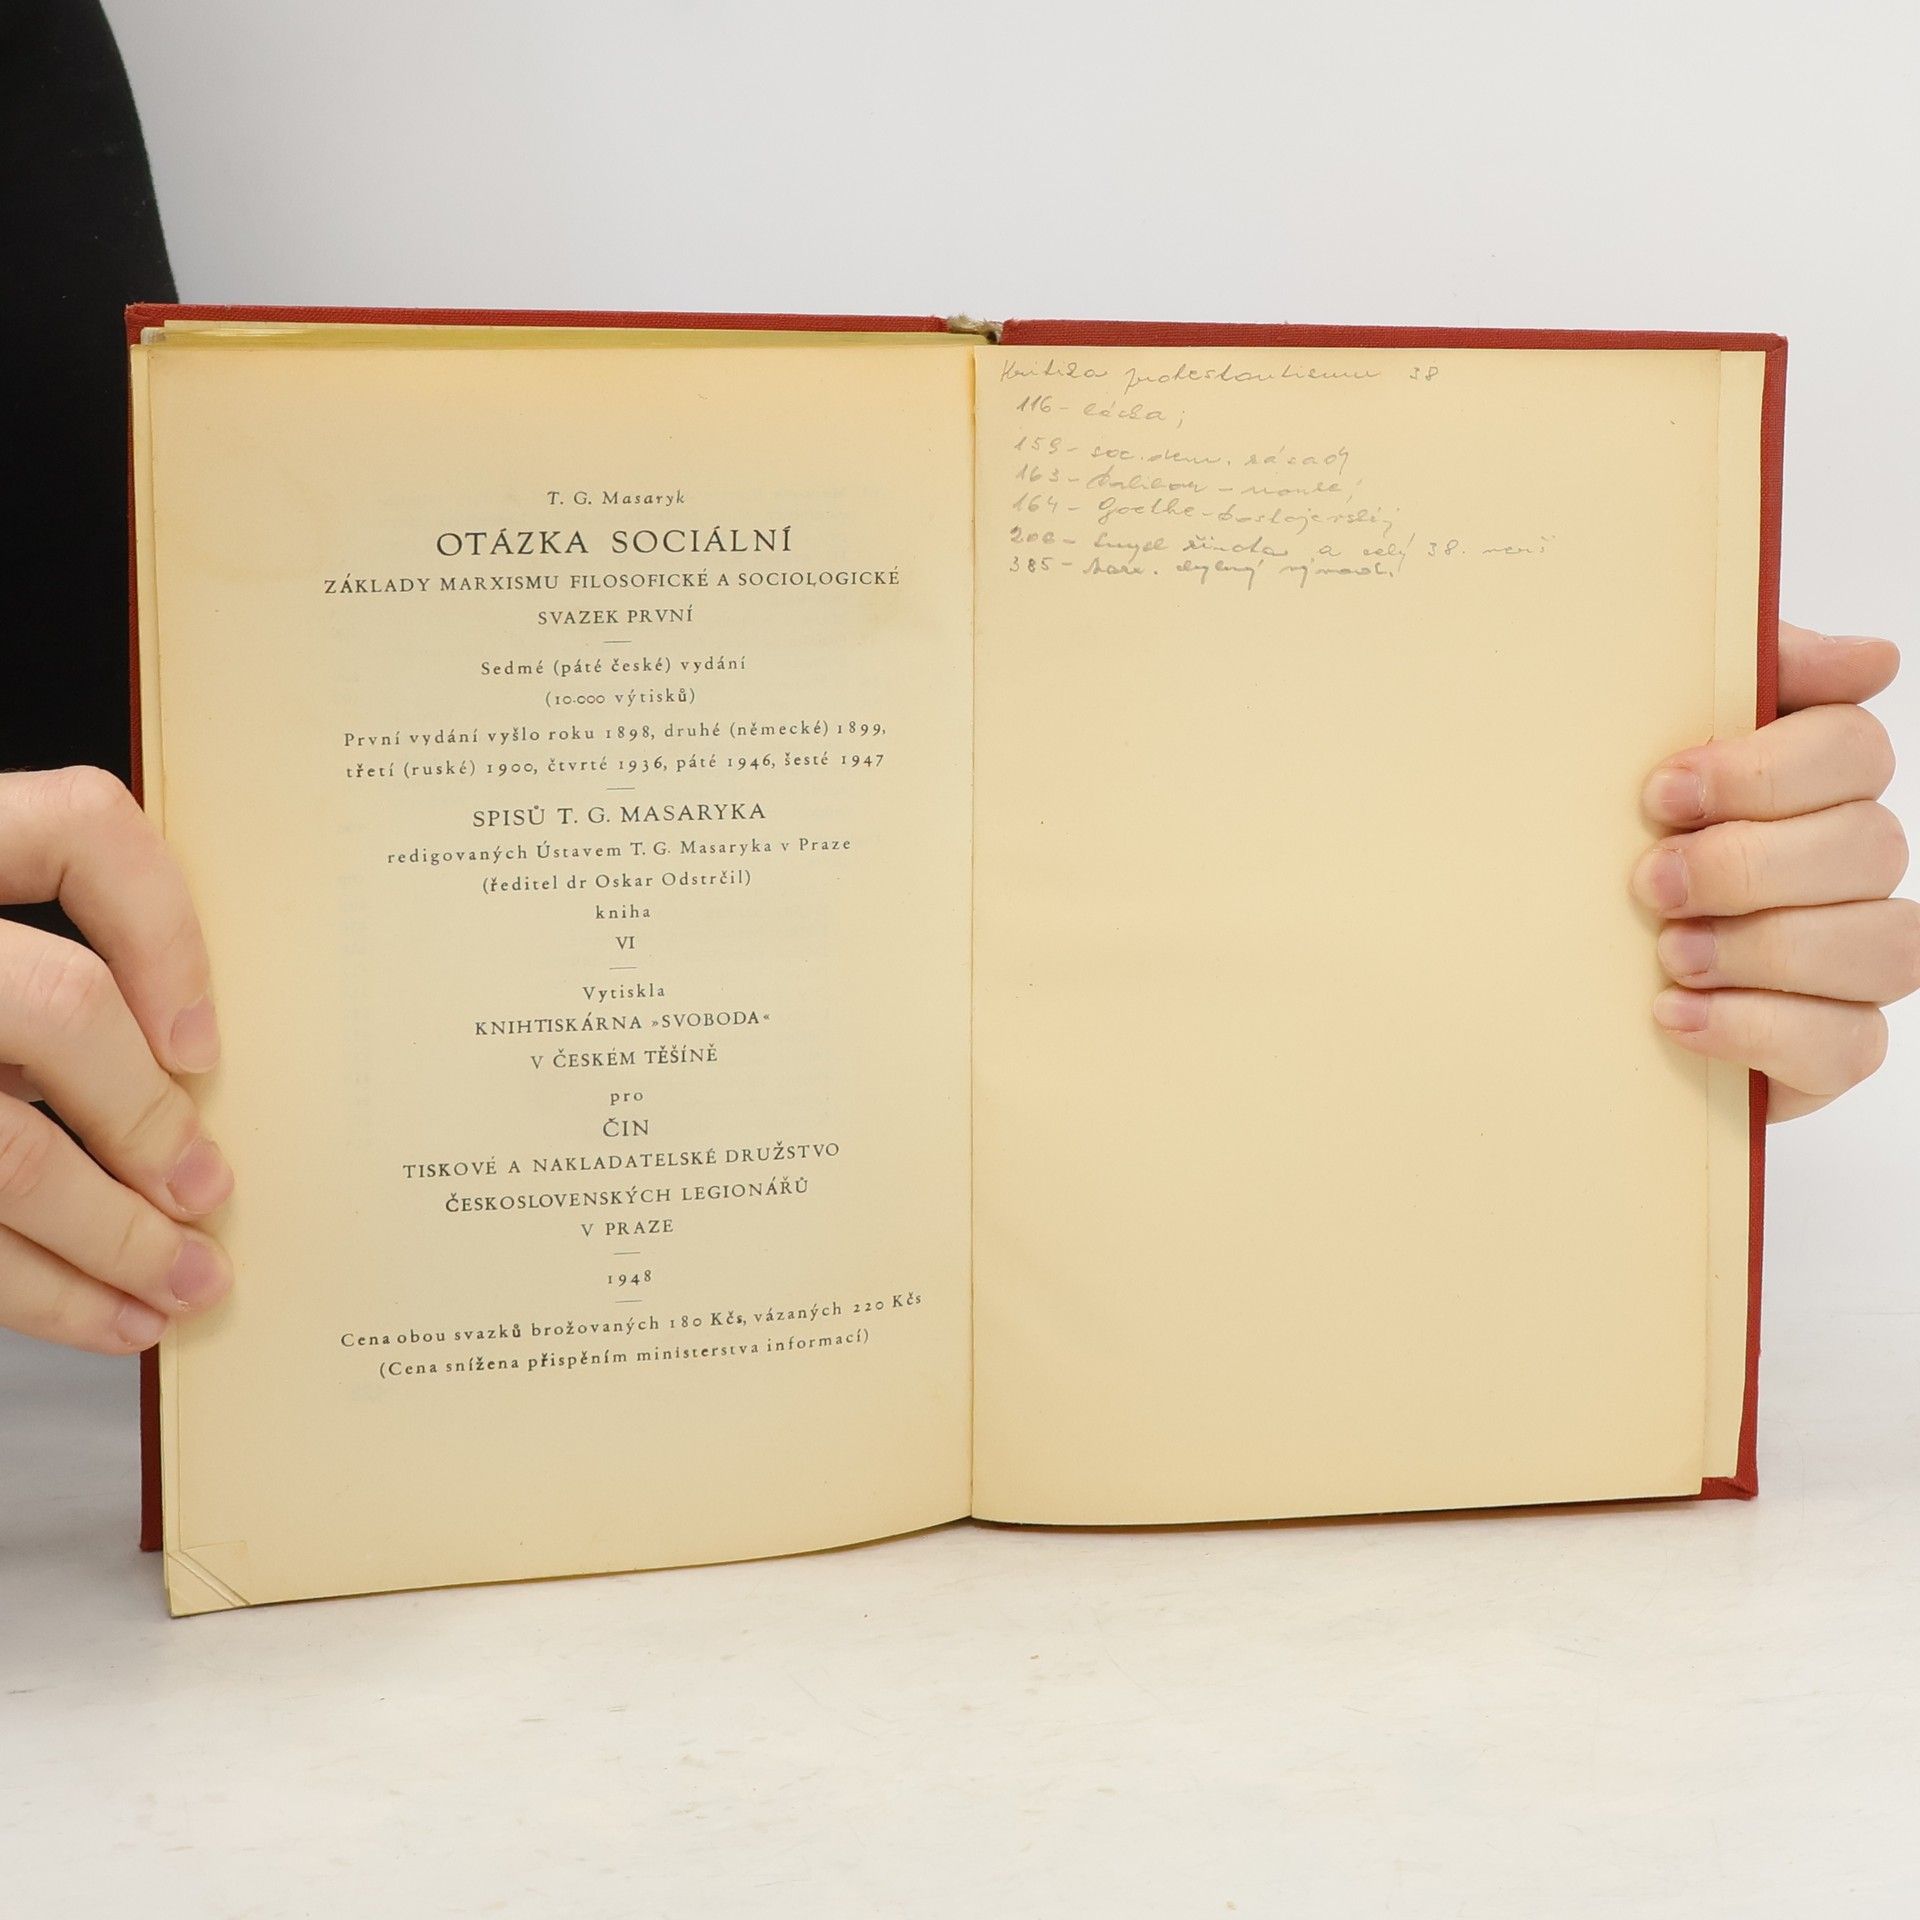 T. G. Masaryk
OTÁZKA SOCIÁLNÍ
ZÁKLADY MARXISMU FILOSOFICKÉ A SOCIOLOGICKÉ
SVAZEK PRVNÍ
Sedmé (páté české) vydání
(10.000 výtisků)
První vydání vyšlo roku 1898, druhé (německé) 1899,
třetí (ruské) 1900, čtvrté 1936, páté 1946, šesté 1947
SPISŮ T. G. MASARYKA
redigovaných Ústavem T. G. Masaryka v Praze
(ředitel dr Oskar Odstrčil)
kniha
VI
Vytiskla
KNIHTISKÁRNA »SVOBODA«
V ČESKÉM TĚŠÍNĚ
pro
ČIN
TISKOVÉ A NAKLADATELSKÉ DRUŽSTVO
ČESKOSLOVENSKÝCH LEGIONÁŘŮ
V PRAZE
1948
Cena obou svazků brožovaných 180 Kčs, vázaných 220 Kčs
(Cena snížena přispěním ministerstva informací)
Kritika protestantismu 38
116 - láska;
159 - soc. dem. zásady
163 -
164 - Goethe - Dostojevský
206 - smysl života a celý 38.
385 - mylný vývod.